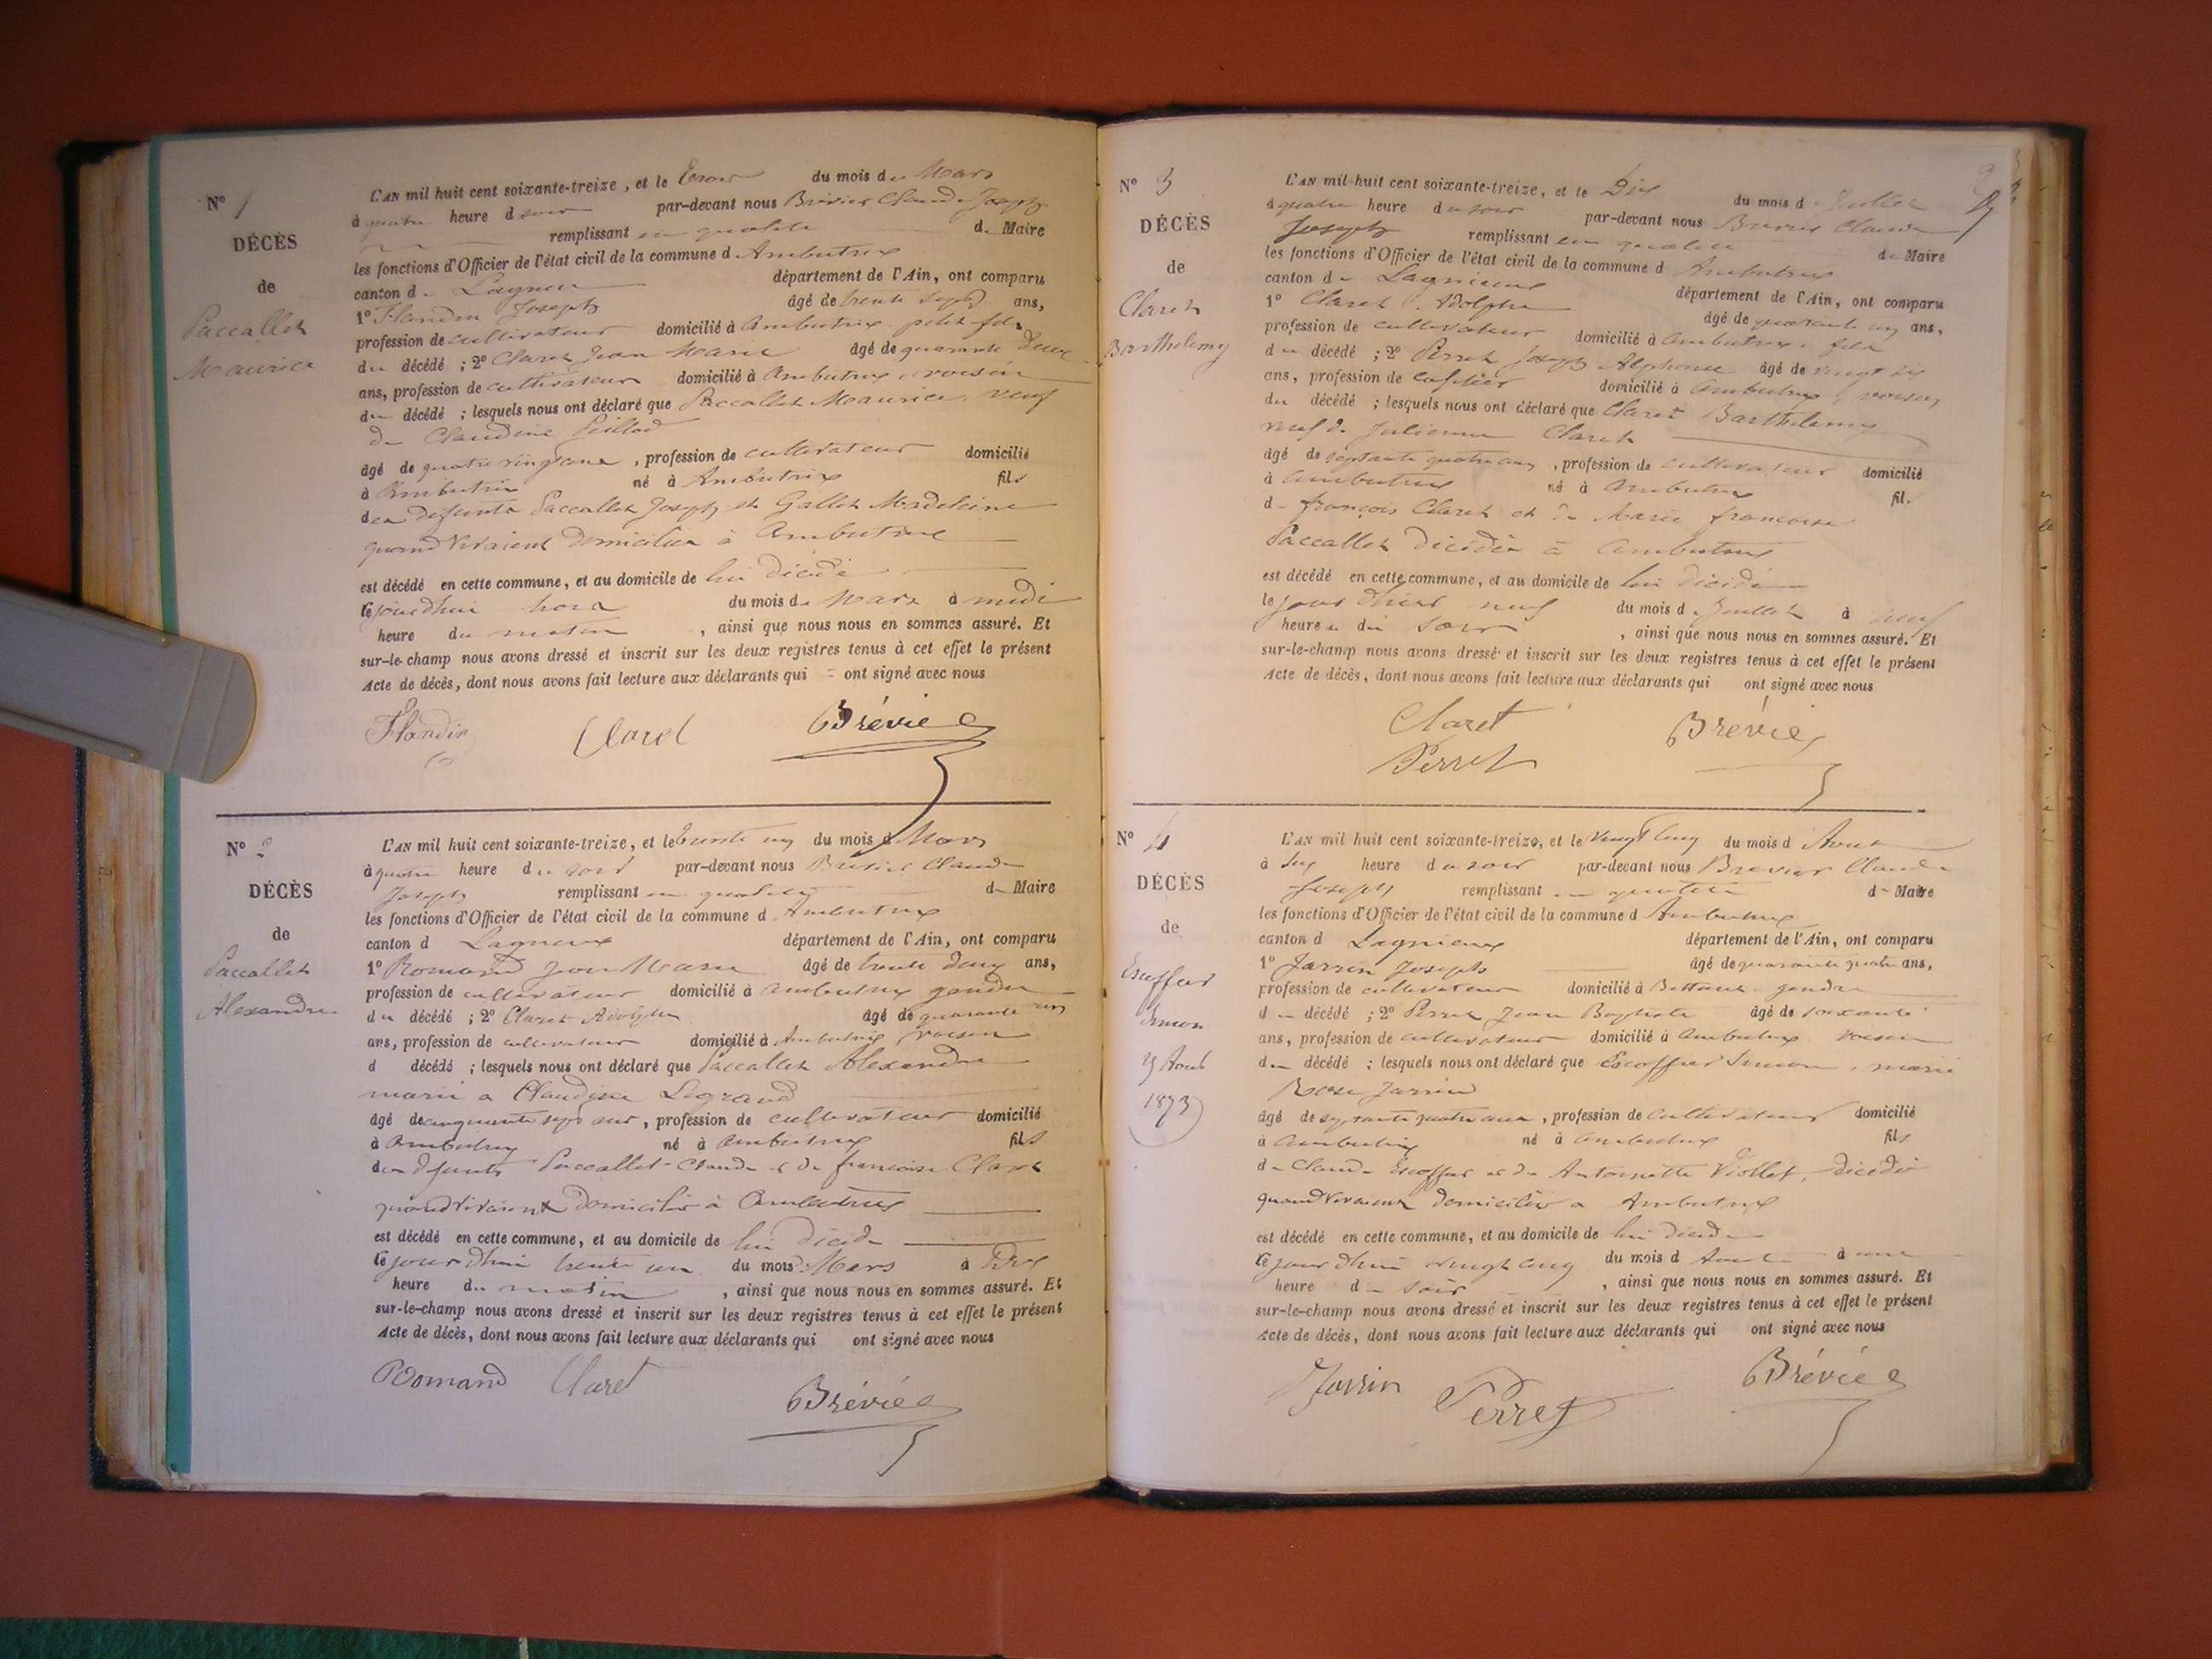 N° 1
DÉCÈS
de
Paccallet
Maurice
L'AN mil huit cent soixante-treize, et le trois du mois de Mars
à quatre heure du soir par-devant nous Brévier Claude Joseph
remplissant en qualité de Maire
les fonctions d'Officier de l'état civil de la commune d Ambutrix
canton de Lagnieu département de l'Ain, ont comparu
1° Flandin Joseph âgé de trente sept ans,
profession de cultivateur domicilié à Ambutrix petit fils
du décédé ; 2° Claret Jean Marie âgé de quarante deux
ans, profession de cultivateur domicilié à Ambutrix, voisin
du décédé ; lesquels nous ont déclaré que Paccallet Maurice, veuf
de Claudine
âgé de quatre vingt ans, profession de cultivateur domicilié
à Ambutrix né à Ambutrix fils
des défunts Paccallet Joseph et Gallet Madeleine
quand vivaient domiciliés à Ambutrix
est décédé en cette commune, et au domicile de lui décédé
le jourdhui trois du mois de Mars à midi
heure du matin, ainsi que nous nous en sommes assuré. Et
sur-le-champ nous avons dressé et inscrit sur les deux registres tenus à cet effet le présent
Acte de décès, dont nous avons fait lecture aux déclarants qui ont signé avec nous
Flandin Claret Brévier
N° 2
DÉCÈS
de
Paccallet
Alexandre
L'AN mil huit cent soixante-treize, et le trente un du mois d Mars
à quatre heure du soir par-devant nous Brévier Claude
Joseph remplissant en qualité de Maire
les fonctions d'Officier de l'état civil de la commune d Ambutrix
canton d Lagnieux département de l'Ain, ont comparu
1° Romand Jean Marie âgé de trente deux ans,
profession de cultivateur domicilié à Ambutrix gendre
du décédé ; 2° Claret Adolphe âgé de quarante un
ans, profession de cultivateur domicilié à Ambutrix, voisin
d décédé ; lesquels nous ont déclaré que Paccallet Alexandre
marié a Claudine Legrand
âgé de cinquante sept ans, profession de cultivateur domicilié
à Ambutrix né à Ambutrix fils
des défunts Paccallet Claude et de françoise Claret
quand vivaient domiciliés à Ambutrix
est décédé en cette commune, et au domicile de lui décédé
le jour dhui trente un du mois Mars à
heure du matin, ainsi que nous nous en sommes assuré. Et
sur-le-champ nous avons dressé et inscrit sur les deux registres tenus à cet effet le présent
Acte de décès, dont nous avons fait lecture aux déclarants qui ont signé avec nous
Romand Claret Brévier
N° 3
DÉCÈS
de
Claret
Barthelemy
L'AN mil huit cent soixante-treize, et le Dix du mois d Juillet
à quatre heure du soir par-devant nous Brévier Claude
Joseph remplissant en qualité de Maire
les fonctions d'Officier de l'état civil de la commune d Ambutrix
canton de Lagnieux département de l'Ain, ont comparu
1° Claret Adolphe âgé de quarante un ans,
profession de cultivateur domicilié à Ambutrix, fils
du décédé ; 2° Perret Joseph Alphonse âgé de vingt six
ans, profession de domicilié à Ambutrix, voisin
du décédé ; lesquels nous ont déclaré que Claret Barthelemy
veuf de Julienne Claret
âgé de septante quatre ans, profession de cultivateur domicilié
à Ambutrix né à Ambutrix fils
de françois Claret et de Marie françoise
Paccallet décédés à Ambutrix
est décédé en cette commune, et au domicile de lui décédé
le jour dhier neuf du mois de Juillet à neuf
heures du soir, ainsi que nous nous en sommes assuré. Et
sur-le-champ nous avons dressé et inscrit sur les deux registres tenus à cet effet le présent
Acte de décès, dont nous avons fait lecture aux déclarants qui ont signé avec nous
Claret Brévier
Perret
N° 4
DÉCÈS
de
Escoffier
Simon
25 Aout
1873
L'AN mil huit cent soixante-treize, et le vingt cinq du mois d Aout
à six heure du soir par-devant nous Brevier Claude
Joseph remplissant en qualité de Maire
les fonctions d'Officier de l'état civil de la commune d Ambutrix
canton d Lagnieux département de l'Ain, ont comparu
1° Jarrin Joseph âgé de quarante quatre ans,
profession de cultivateur domicilié à Bettant gendre
du décédé ; 2° Perret Jean Baptiste âgé de soixante
ans, profession de cultivateur domicilié à Ambutrix voisin
du décédé ; lesquels nous ont déclaré que Escoffier Simon, marié
Rose Jarrin
âgé de septante quatre ans, profession de cultivateur domicilié
à Ambutrix né à Ambutrix fils
de Claude Escoffier et de Antoinette Viollet, décédés
quand vivaient domiciliés a Ambutrix
est décédé en cette commune, et au domicile de lui décédé
le jour dhui vingt cinq du mois d Aout à une
heure du soir, ainsi que nous nous en sommes assuré. Et
sur-le-champ nous avons dressé et inscrit sur les deux registres tenus à cet effet le présent
Acte de décès, dont nous avons fait lecture aux déclarants qui ont signé avec nous
Jarrin Perret Brévier